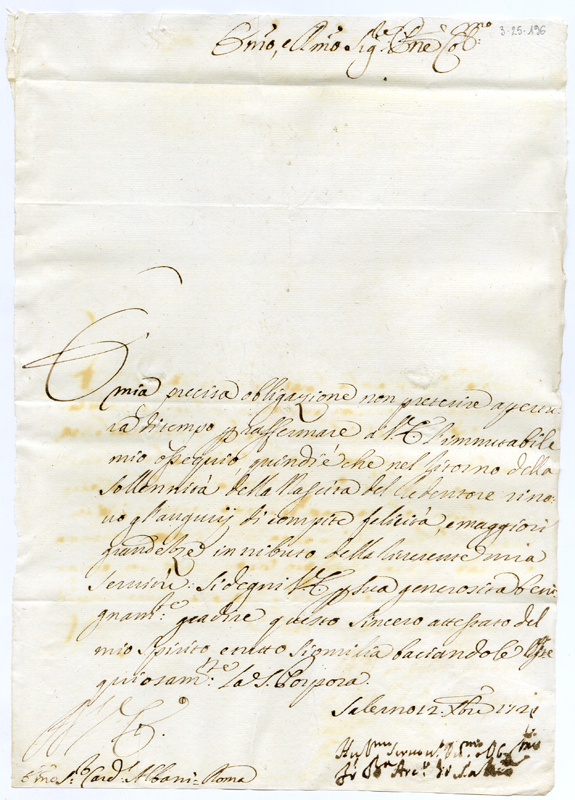 3-25-196
Emo, e Rmo Sig.re Pne Col.mo
È mia precisa obligazione non preterire apertu-
ra di tempo p rassermare a V.E. l'immutabile
mio ossequio, quindi è che nel ritorno della
sollennità della Nascita del Redentore rino-
vo gl'augurij di compite felicità, e maggiori
grandezze in tributo della riverente mia
servitù: si degni V.E. p sua generosità beni-
gnam.te gradire questo sincero attestato del
mio spirito, e resto
baciandole osse-
quiosam.te la S. Porpora.
Salerno 12. Xbre 172
V.E.
Hu.mo Servo
Arc. di Salerno
Emo S.r Card. Albani - Roma